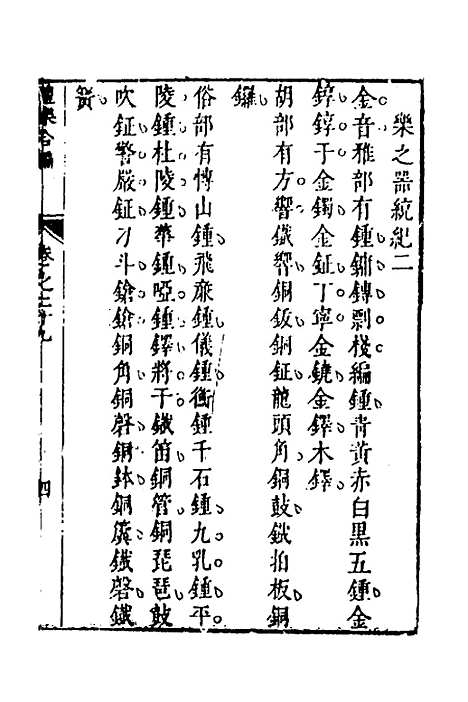 樂之器統紀二
金音雅部有鍾鏞鏄剽棧編鍾青黃赤白黑五鍾金
錞錞于金鐲金鉦丁寧金鐃金鐸木鐸
胡部有方響鐵響銅鈸銅鉦龍頭角銅鼓鐵拍板銅
鑼
俗部有博山鍾飛廉鍾儀鍾衝鍾千石鍾九乳鍾平
陵鍾杜陵鍾華鍾啞鍾鐸將于鐵笛銅管銅琵琶鼓
吹鉦警嚴鉦刁斗鎗鎗銅角銅磬銅鉢銅簧鐵磬鐵
簧
禮樂合編
卷之二十九
四